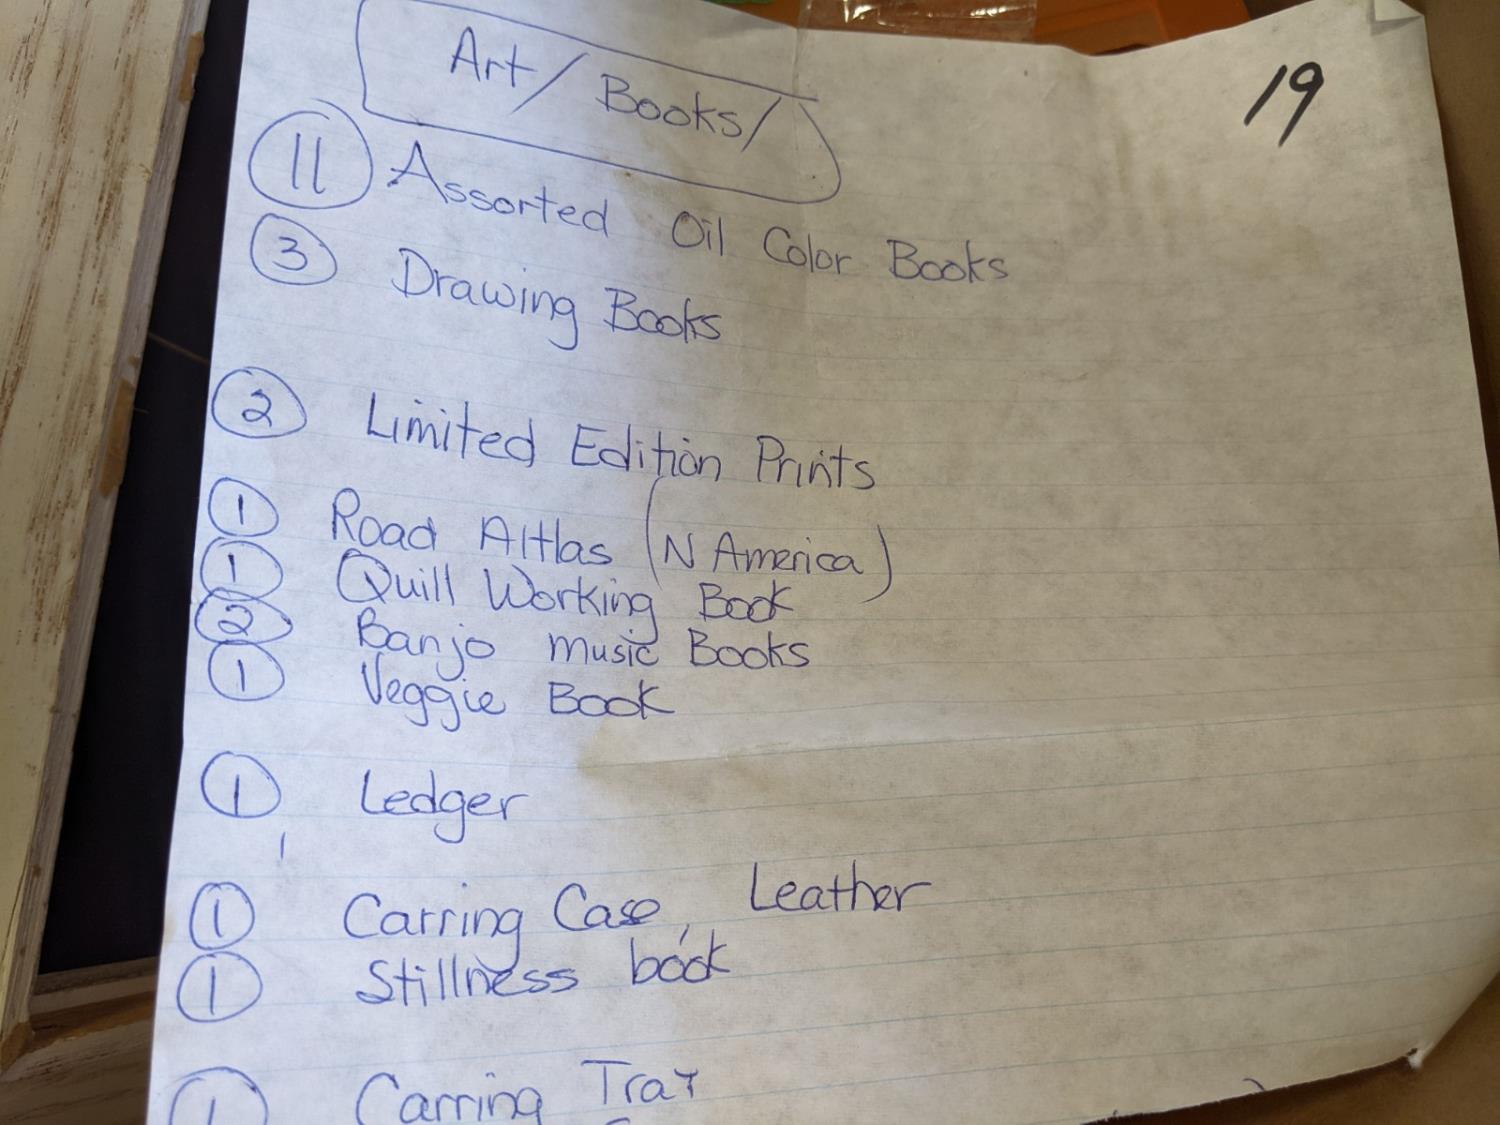 Art/Books/
19
11 Assorted Oil Color Books
3 Drawing Books
2 Limited Edition Prints
1 Road Altlas (N America)
1 Quill Working Book
2 Banjo music Books
1 Veggie Book
1 Ledger
1 Carring Case, Leather
1 Stillness book
1 Carring Tray